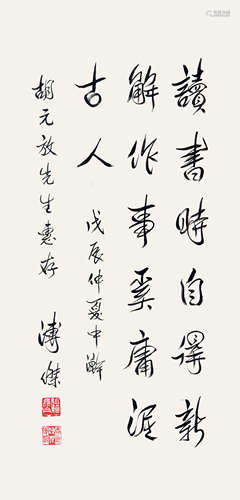 讀書時自得新
解作事奚庸泥
古人
戊辰仲夏中澣
胡元放先生惠存
溥傑